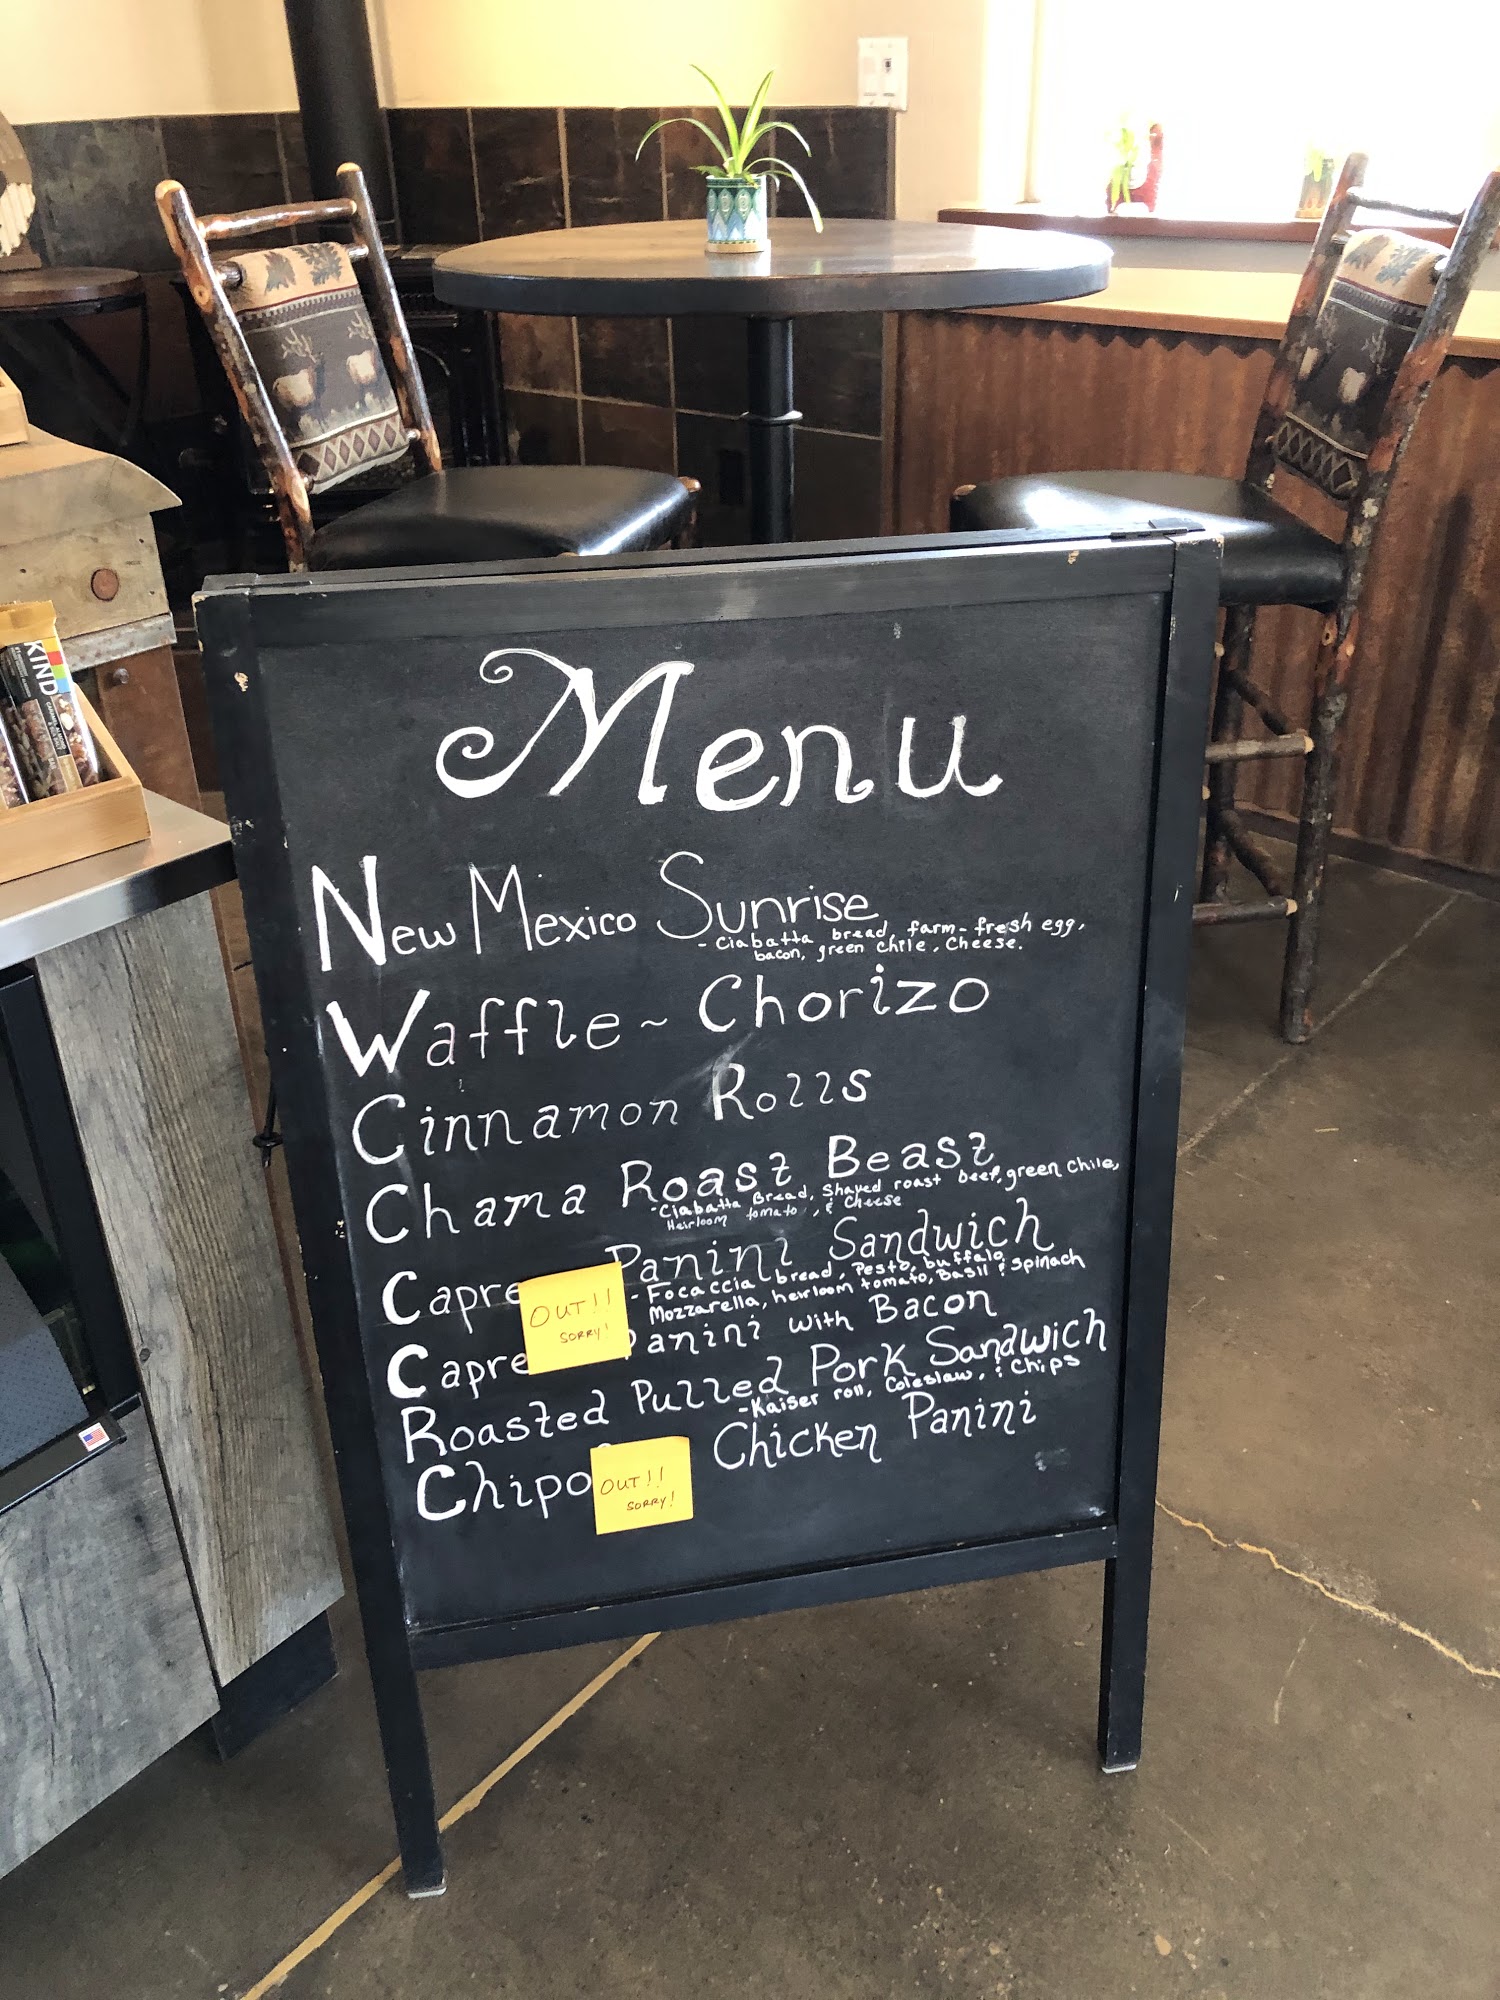 KIND
Menu
New Mexico Sunrise
- Ciabatta bread, farm-fresh egg,
bacon, green chile, Cheese.
Waffle ~ Chorizo
Cinnamon Rolls
Chama Roast Beast
- Ciabatta Bread, Shaved roast beef, green chile,
Heirloom tomato, & Cheese
Capre Panini Sandwich
- Focaccia bread, Pesto, buffalo
Mozzarella, heirloom tomato, Basil & Spinach
OUT!!
SORRY!
Capre Panini with Bacon
Roasted Pulled Pork Sandwich
- Kaiser roll, Coleslaw, & Chips
Chipo Chicken Panini
OUT!!
SORRY!